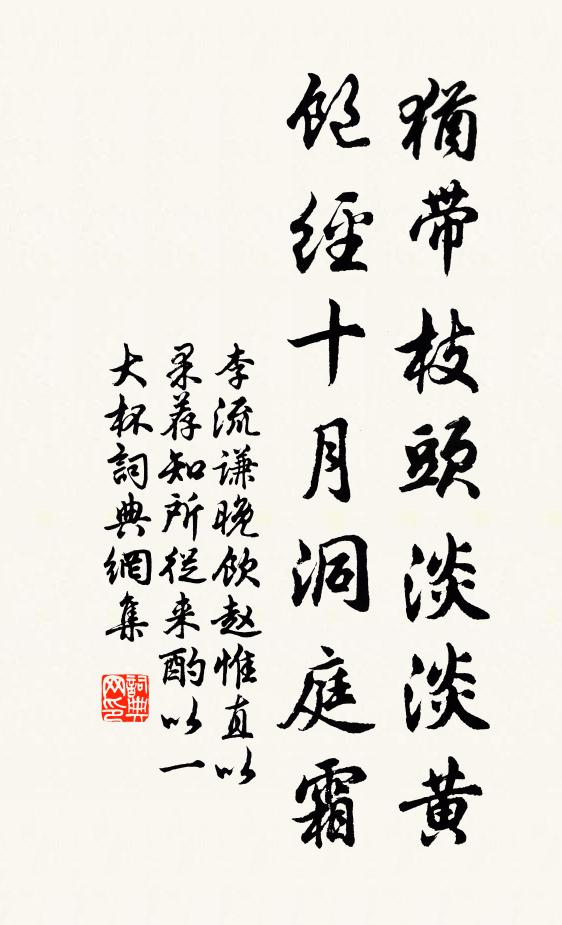 猶帶枝頭淡淡黄
飽經十月洞庭霜
李流谦晚飲赵惟直以
果荐知所從来酌以一
大杯詞典網集
詞典网印